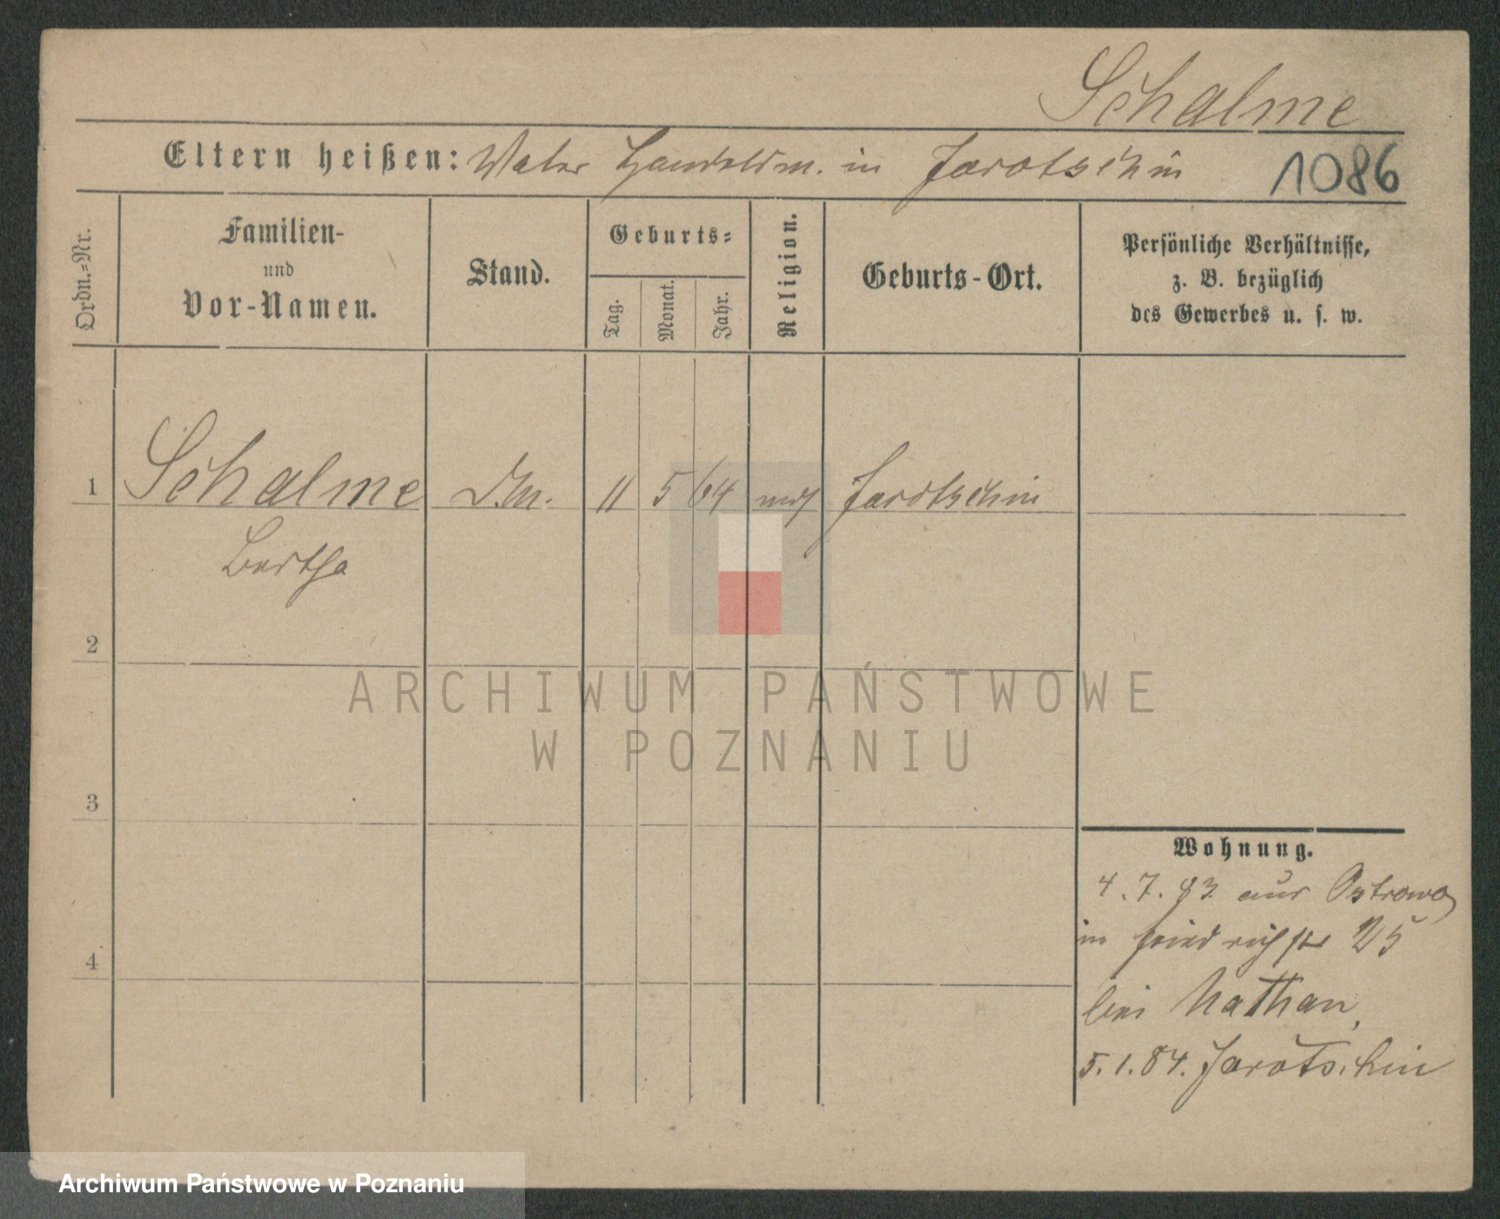 Schalme
Eltern heißen: Vater Handelsm. in Jarotschin 1086
Ordn.=Nr.
Familien-
und
Vor-Namen.
Stand.
Geburts=
Tag.
Monat.
Jahr.
Religion.
Geburts-Ort.
Persönliche Verhältnisse,
z. B. bezüglich
des Gewerbes u. s. w.
1 Schalme 11 5 64 mos Jarotschin
Bertha
2
3
4
Wohnung.
4.7.83 aus Ostrowo
in Friedrichstr 25
bei Nathan,
5.1.84. Jarotschin
ARCHIWUM PAŃSTWOWE
W POZNANIU
Archiwum Państwowe w Poznaniu